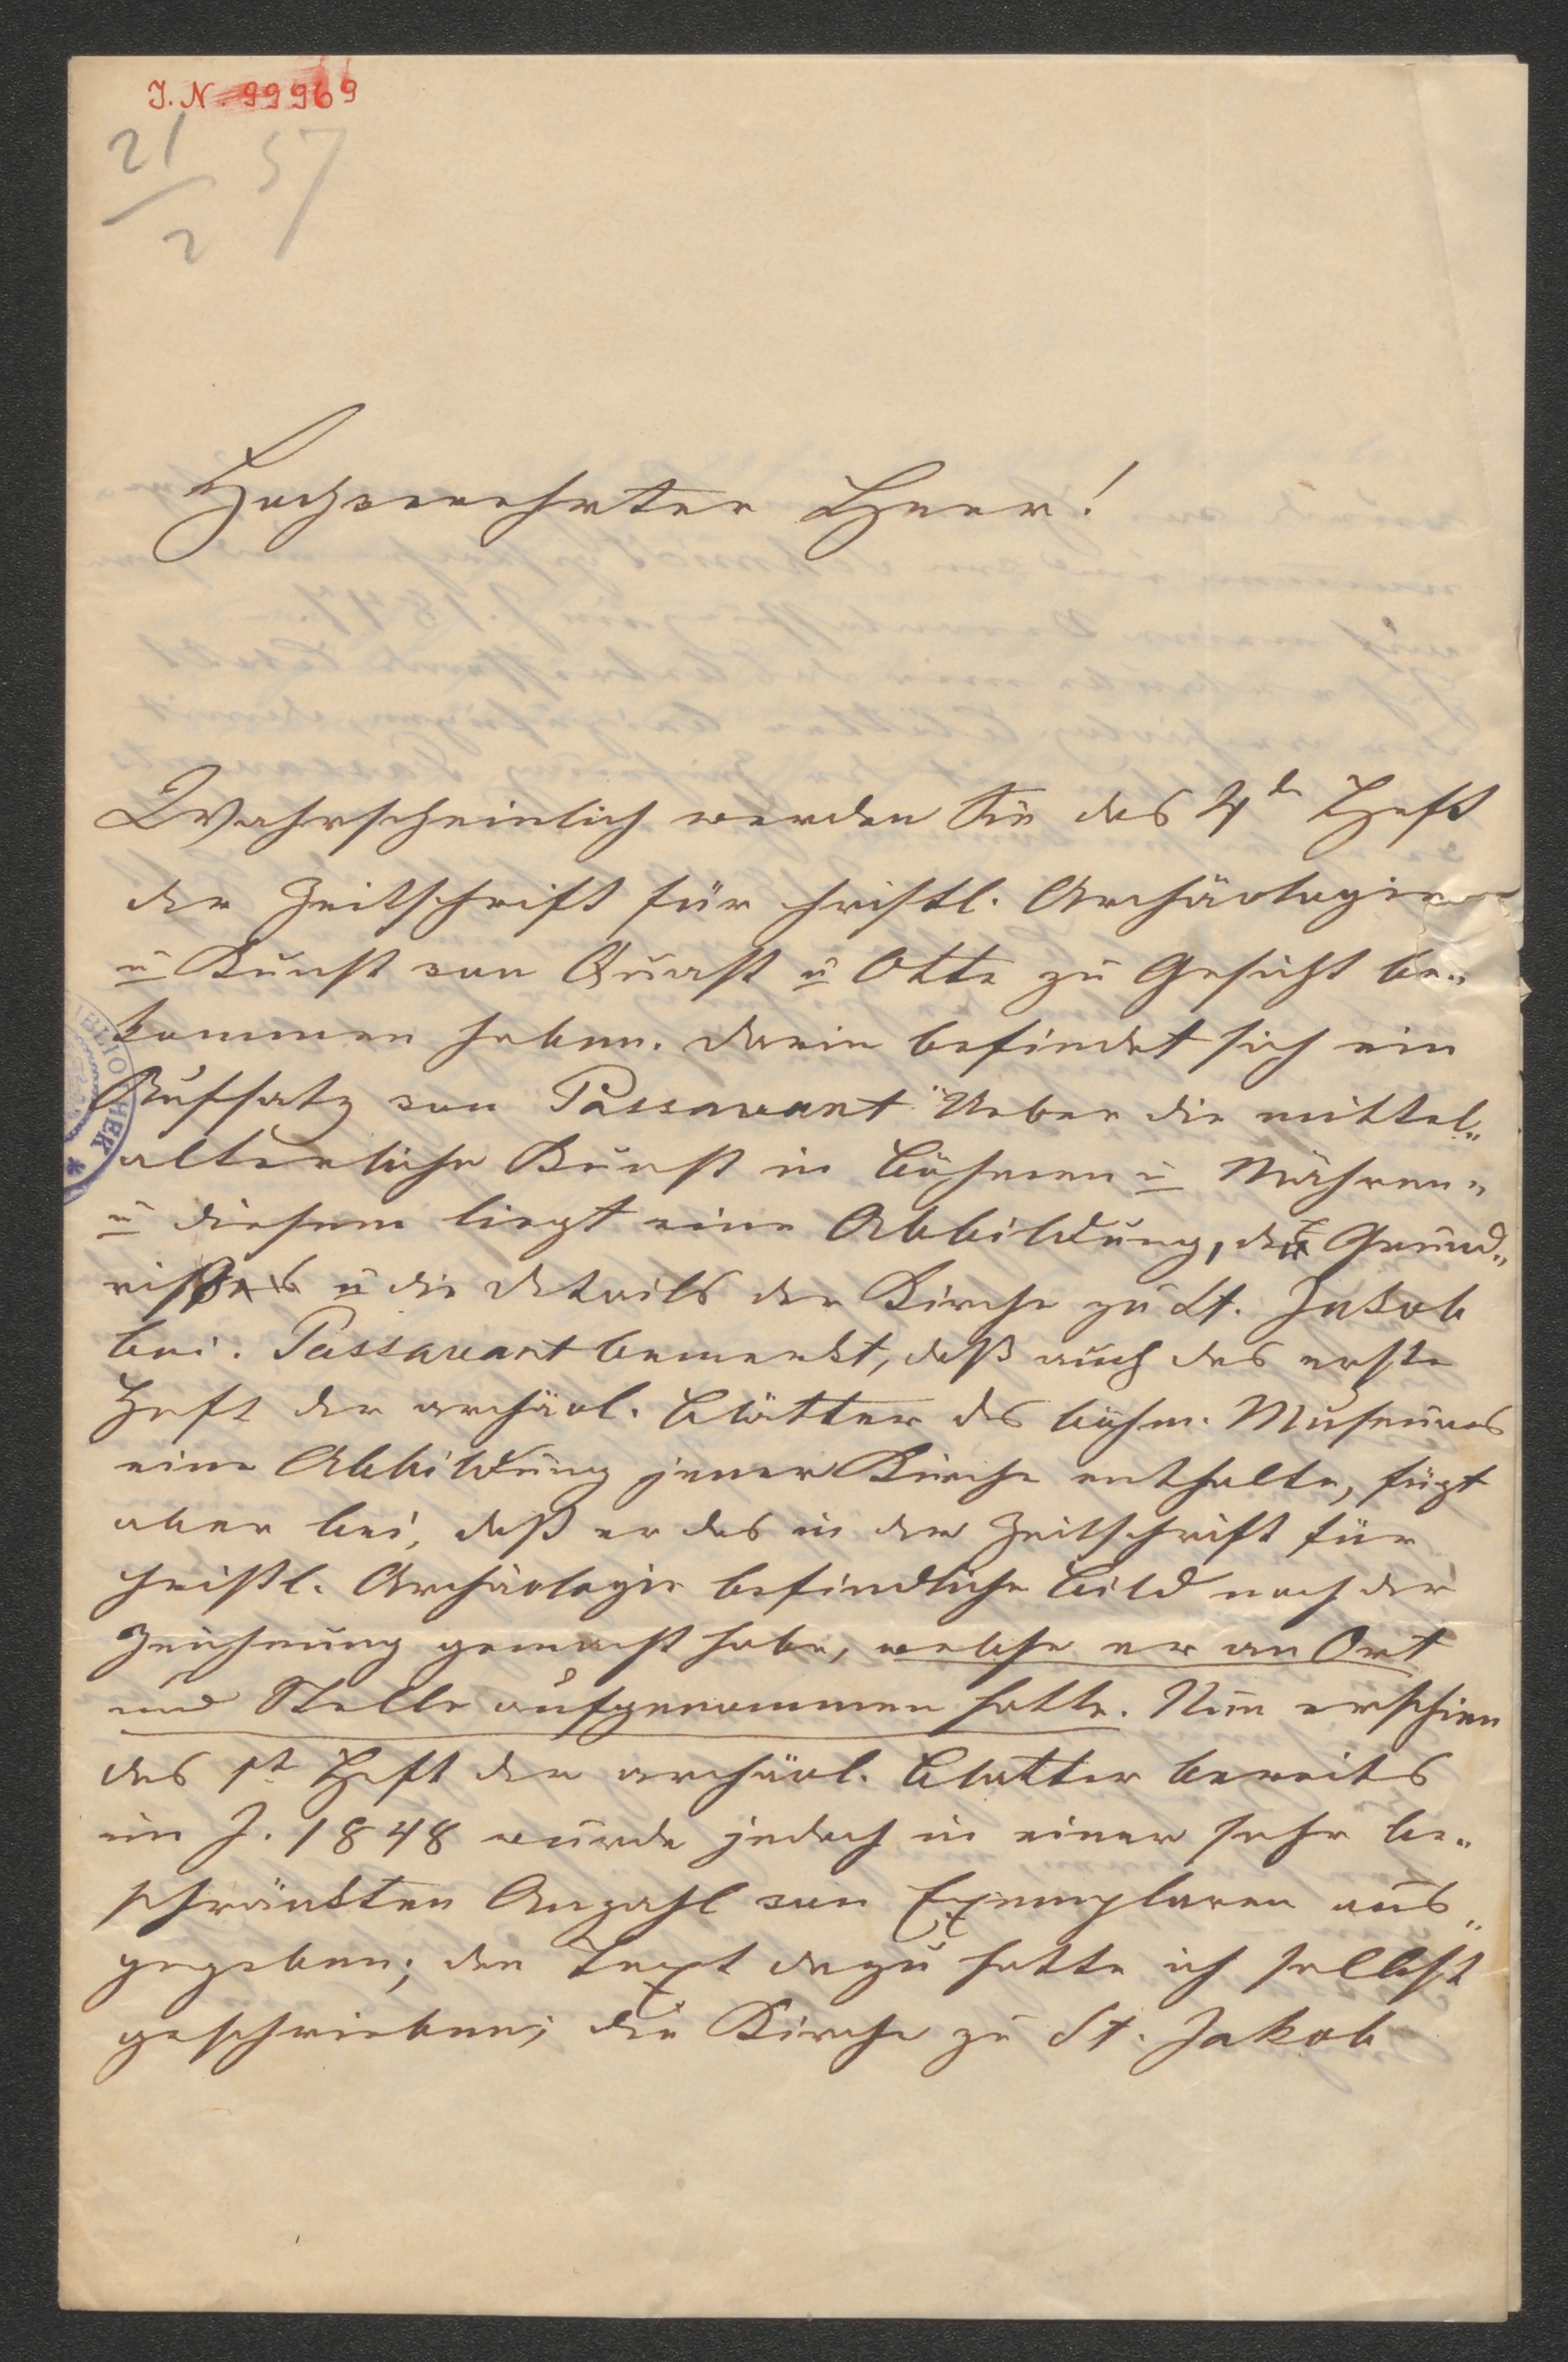 J. N. 99969
21/2 57
Hochverehrter Herr!
Wahrscheinlich werden Sie das 4te Heft
der Zeitschrift für christl. Archäologie
u Kunst von Quast u Otte zu Gesicht be-
kommen haben. Darin befindet sich ein
Aufsatz von Passavant "Ueber die mittel-
alterliche Kunst in Böhmen u Mähren"
u diesem liegt eine Abbildung, der Grund-
riß u die Details der Kirche zu St. Jakob
bei. Passavant bemerkt, daß auch das erste
Heft der archäol. Blätter des böhm. Museums
eine Abbildung jener Kirche enthalte, fügt
aber bei, daß er das in der Zeitschrift für
christl. Archäologie befindliche Bild nach der
Zeichnung gemacht habe, welche er an Ort
und Stelle aufgenommen hatte. Nun erschien
das 1te Heft der archäol. Blatter bereits
im J. 1848 wurde jedoch in einer sehr be-
schränkten Anzahl von Exemplaren aus-
gegeben; den Text dazu hatte ich selbst
geschrieben; die Kirche zu St. Jakob